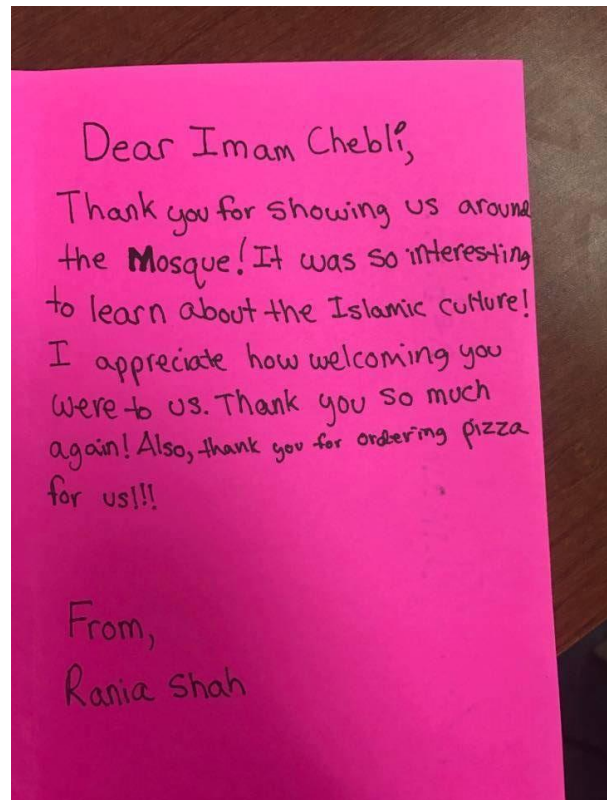 Dear Imam Chebli,
Thank you for showing us around
the Mosque! It was so interesting
to learn about the Islamic culture!
I appreciate how welcoming you
were to us. Thank you so much
again! Also, thank you for ordering pizza
for us!!!
From,
Rania Shah